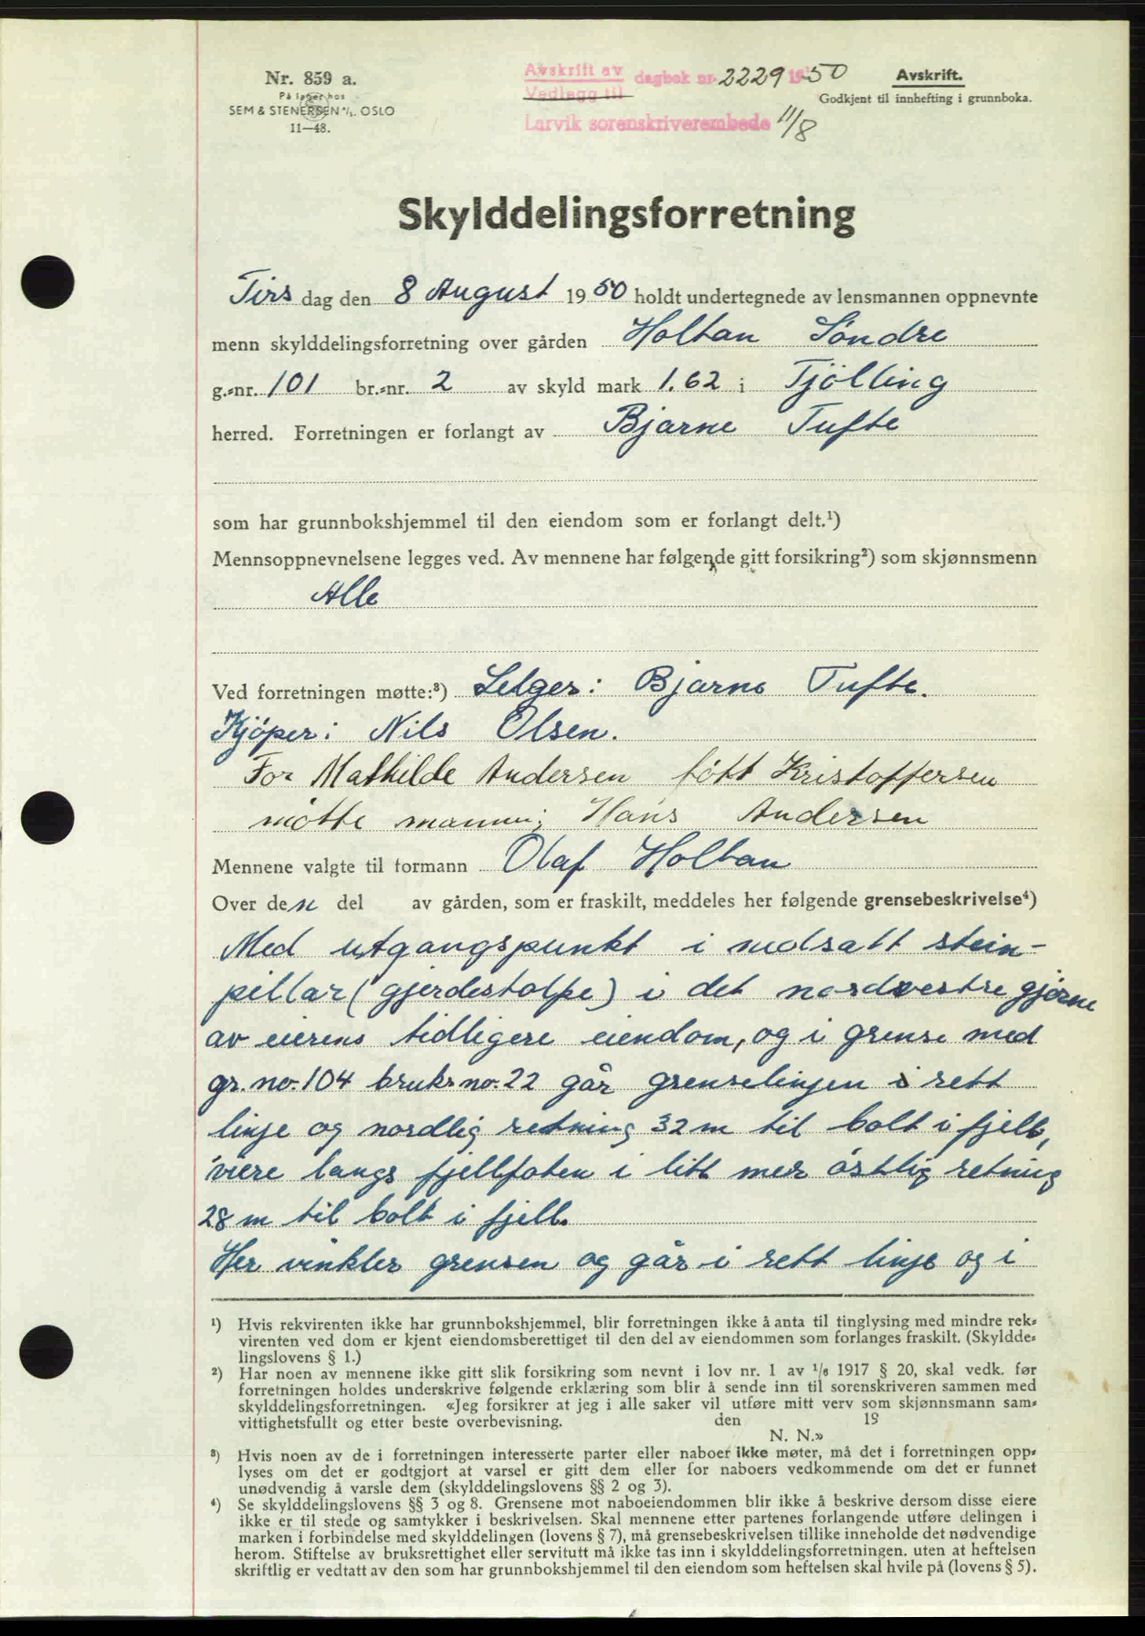 Nr. 859 a.
På lager hos
SEM & STENERSEN A/S. OSLO
11—48.
Avskrift av
Vedlegg til
dagbok nr. 2229 1950
Larvik sorenskriverembede 11/8
Avskrift.
Godkjent til innhefting i grunnboka.
Skylddelingsforretning
Tirs dag den 8 August 19 50 holdt undertegnede av lensmannen oppnevnte
menn skylddelingsforretning over gården Holtan Söndre
g.-nr. 101 br.-nr. 2 av skyld mark 1.62 i Tjölling
herred. Forretningen er forlangt av Bjarne Tufte
som har grunnbokshjemmel til den eiendom som er forlangt delt.¹)
Mennsoppnevnelsene legges ved. Av mennene har følgende gitt forsikring²) som skjønnsmenn
Alle
Ved forretningen møtte:³) Selger: Bjarne Tufte.
Kjöper: Nils Olsen.
For Mathilde Andersen född Kristoffersen
mötte mannen; Hans Andersen
Mennene valgte til formann Olaf Holtan
Over den del av gården, som er fraskilt, meddeles her følgende grensebeskrivelse⁴)
Med utgangspunkt i nedsatt stein-
pillar (gjerdestolpe) i det nordvestre hjørne
av eierens tidligere eiendom, og i grense med
gr. no. 104 bruks no. 22 går grenselinjen i rett
linje og nordlig retning 32 m til bolt i fjell,
viere langs fjellfoten i litt mer östlig retning
28 m til bolt i fjell.
Her vinkler grensen og går i rett linje og i
¹) Hvis rekvirenten ikke har grunnbokshjemmel, blir forretningen ikke å anta til tinglysing med mindre rek-
virenten ved dom er kjent eiendomsberettiget til den del av eiendommen som forlanges fraskilt. (Skyldde-
lingslovens § 1.)
²) Har noen av mennene ikke gitt slik forsikring som nevnt i lov nr. 1 av 1/6 1917 § 20, skal vedk. før
forretningen holdes underskrive følgende erklæring som blir å sende inn til sorenskriveren sammen med
skylddelingsforretningen. «Jeg forsikrer at jeg i alle saker vil utføre mitt verv som skjønnsmann sam-
vittighetsfullt og etter beste overbevisning. den 19
N. N.»
³) Hvis noen av de i forretningen interesserte parter eller naboer ikke møter, må det i forretningen opp-
lyses om det er godtgjort at varsel er gitt dem eller for naboers vedkommende om det er funnet
unødvendig å varsle dem (skylddelingslovens §§ 2 og 3).
⁴) Se skylddelingslovens §§ 3 og 8. Grensene mot naboeiendommen blir ikke å beskrive dersom disse eiere
ikke er til stede og samtykker i beskrivelsen. Skal mennene etter partenes forlangende utføre delingen i
marken i forbindelse med skylddelingen (lovens § 7), må grensebeskrivelsen tillike inneholde det nødvendige
herom. Stiftelse av bruksrettighet eller servitutt må ikke tas inn i skylddelingsforretningen. uten at heftelsen
skriftlig er vedtatt av den som har grunnbokshjemmel til den eiendom som heftelsen skal hvile på (lovens § 5).